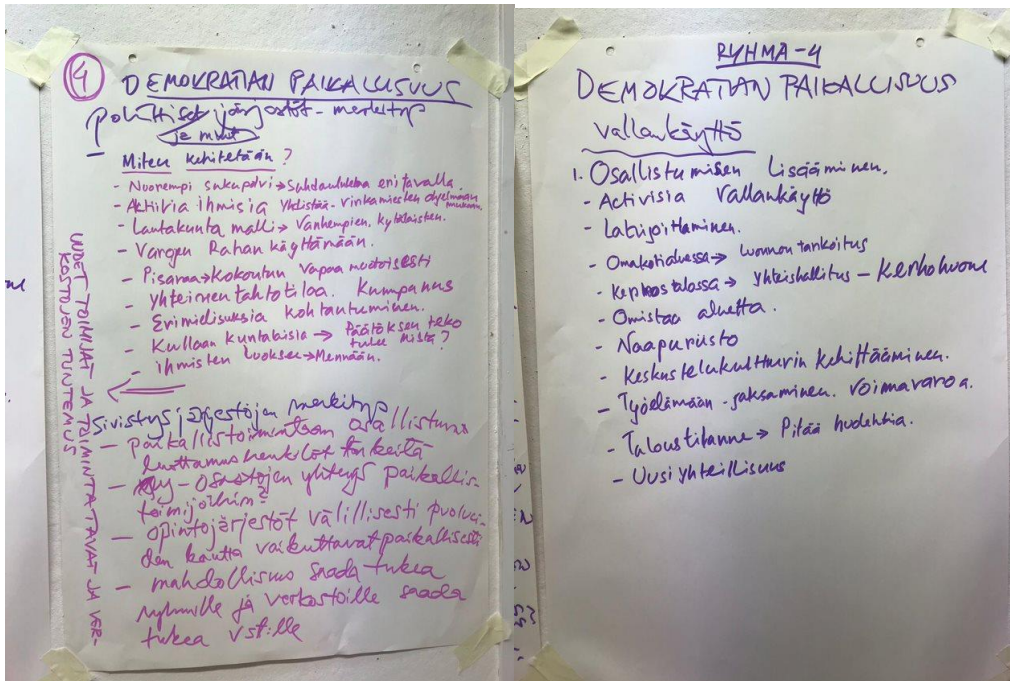 4
DEMOKRATIAN PAIKALLISUUS
poliittiset järjestöt - merkitys
ja muut
Miten kehitetään?
- Nuorempi sukupolvi → eri tavalla.
- Aktivia ihmisia Yhdistää - virkamiesten ohjelmaan mukaan.
- Lautakunta malli → Vanhempien, kyläläisten.
- Varojen Rahan käyttämään.
- Pisaraa → Kokoutun vapaa muotoisesti
- Yhteinen tahtotilaa. Kumpanus
- Erimielisuksia kohtantuminen.
- Kullaan kuntalaisia → Päätöksen teko
tulee mistä?
- ihmisten luoksen → Mennään.
Sivistysjärjestöjen merkitys
- paikallistoimintaan osallistuva
luottamushenkilöt tärkeitä
- osastojen yhteys paikallis-
toimijoihin?
- opintojärjestöt välillisesti puoluei-
den kautta vaikuttavat paikallisesti
- mahdollisuus saada tukea
ryhmille ja verkostoille saada
tukea vst:lle
UUDET TOIMIJAT JA TOIMINTATAVAT JA VER-
KOSTOJEN TUNTEMUS
RYHMA-4
DEMOKRATIAN PAIKALLISUUS
vallankäyttö
1. Osallistumisen Lisääminen.
- Activisia Vallankäyttö
- Omakotialuessa → Luonnon tarkoitus
- Kerrostalossa → yhteishallitus - Kerhohuone
- Omistaa aluetta.
- Naapurusto
- Keskustelukulttuurin kehittääminen.
- Työelämään - jaksaminen. Voimavaroa.
- Taloustilanne → Pitää huolehtia.
- Uusi yhteillisuus